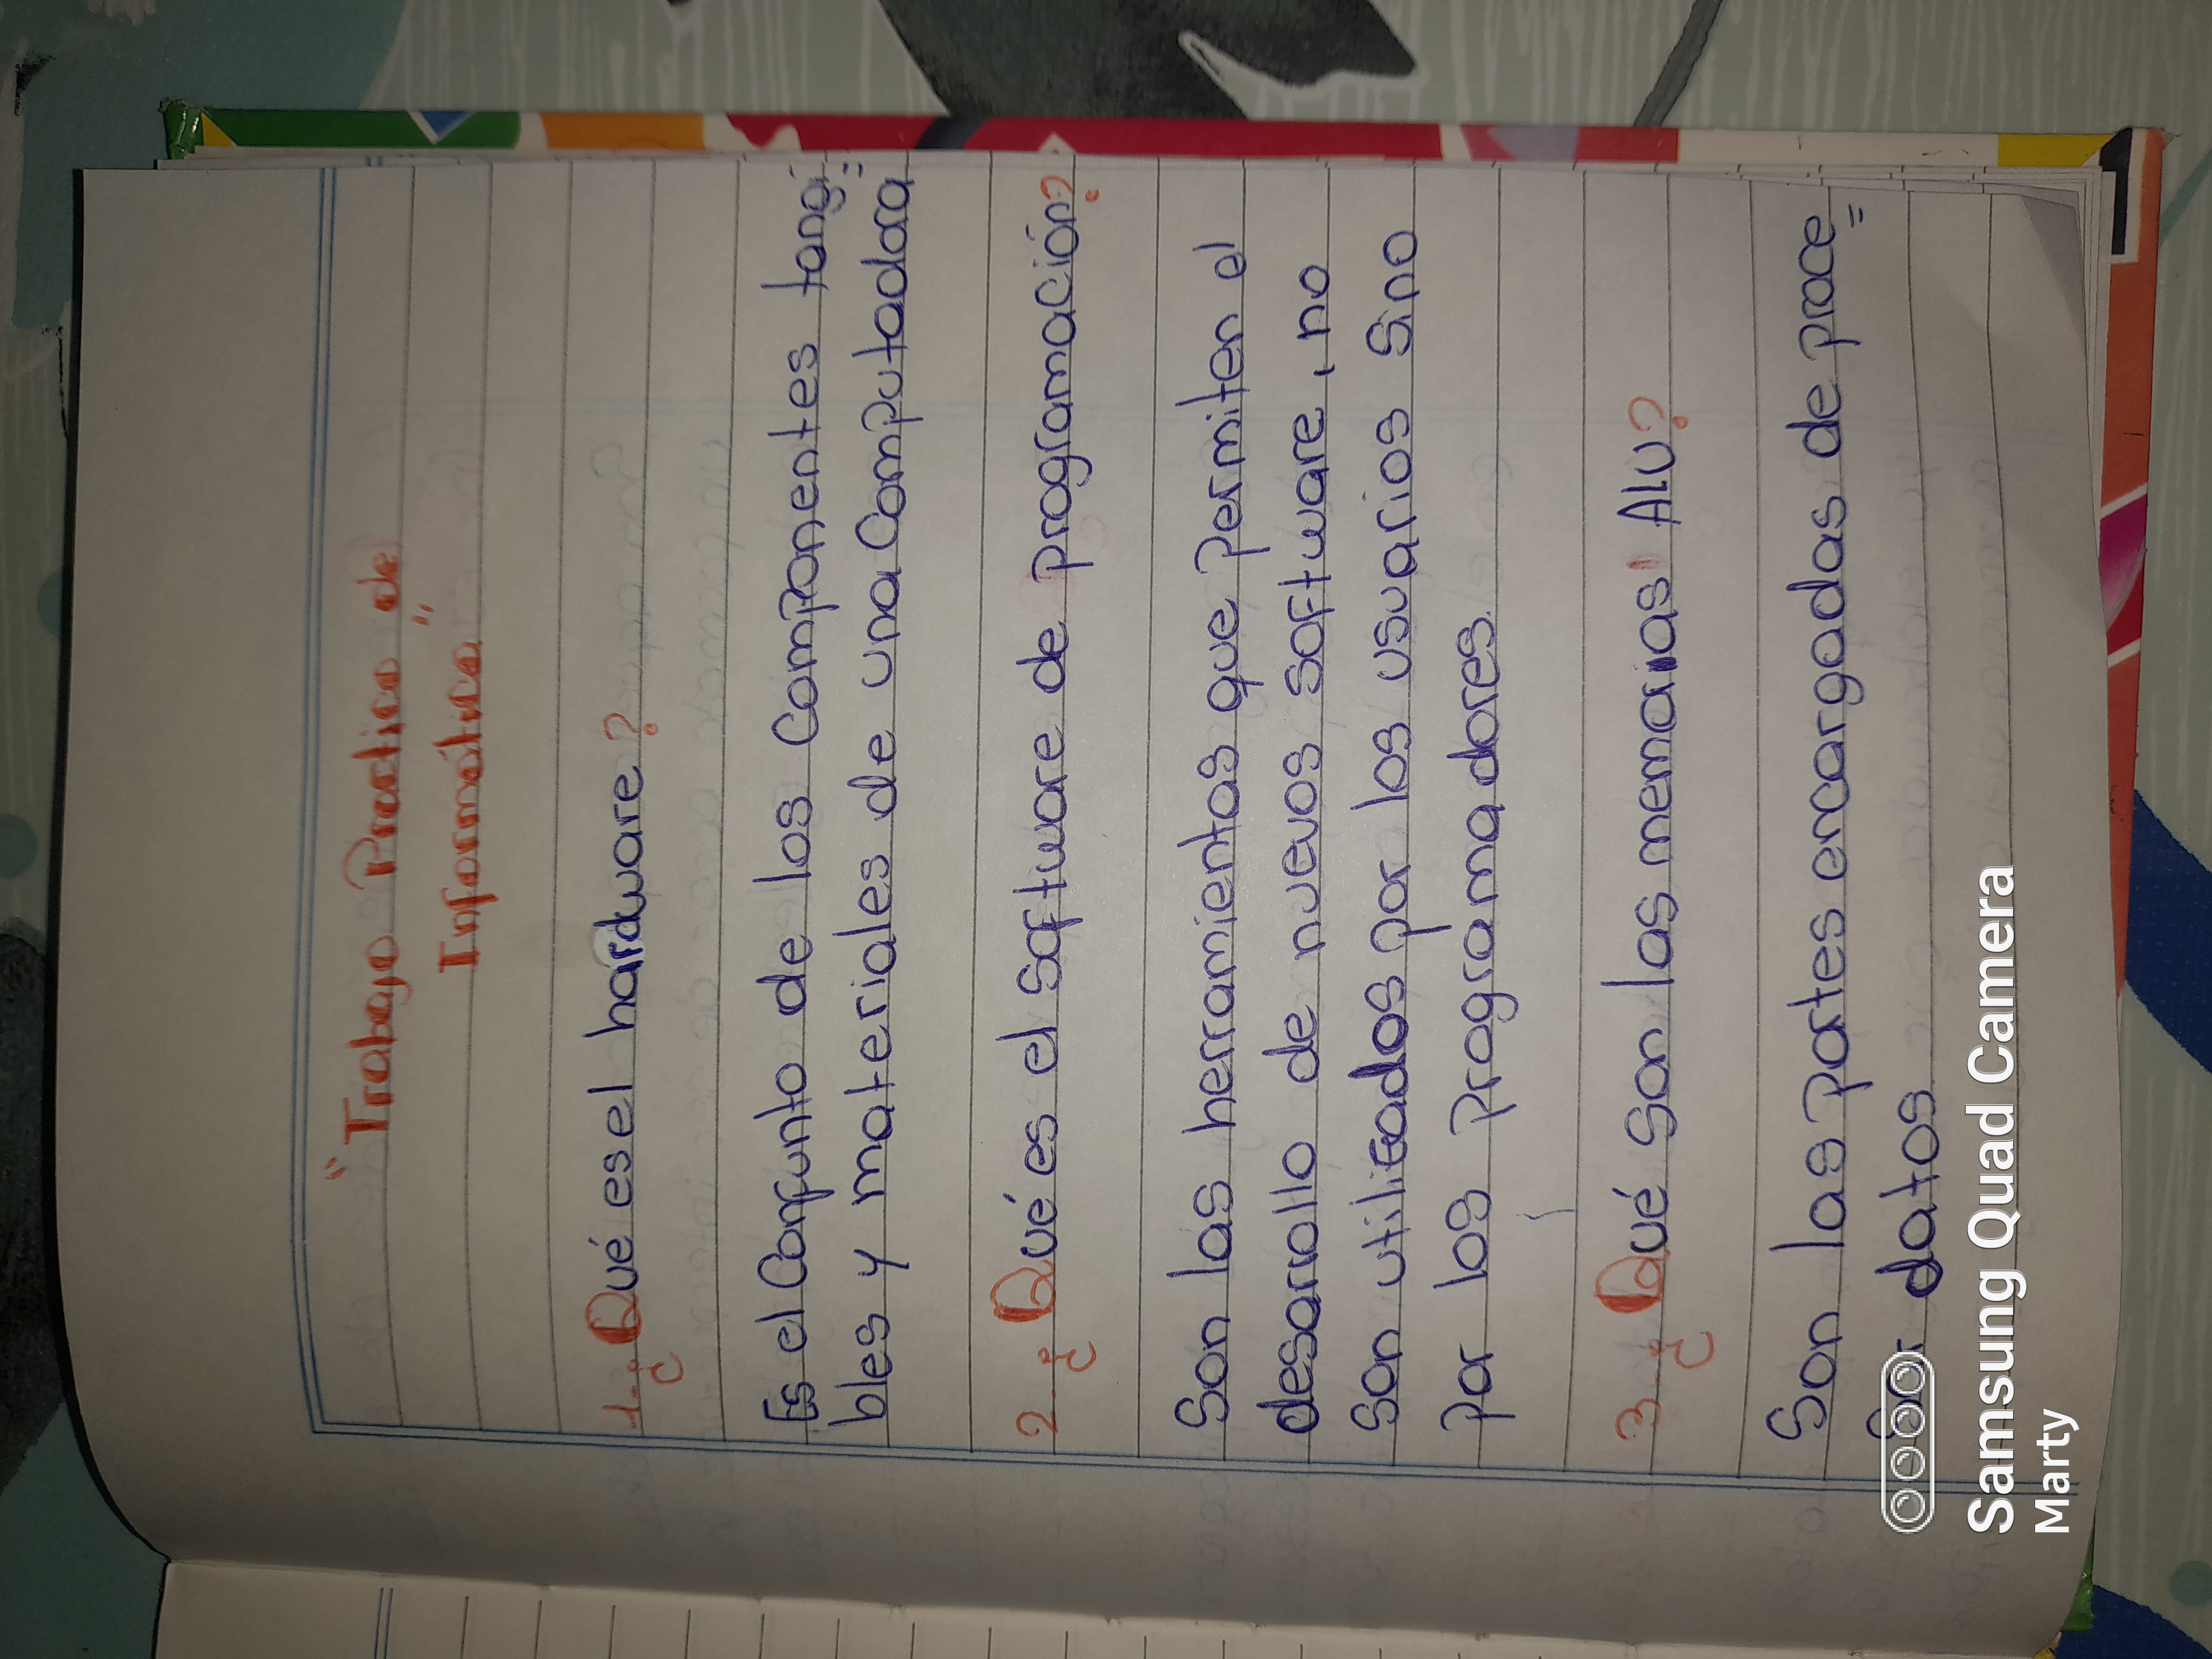 "Trabajo Practico de
Informática"
1-¿Qué es el hardware?
Es el Conjunto de los Componentes tangi=
bles y materiales de una Computadora
2-¿Qué es el software de programación?
Son las herramientas que Permiten el
desarrollo de nuevos software, no
Son utilizados por los usuarios Sino
por los Programadores.
3-¿Qué Son las memorias ALU?
Son las partes encargadas de proce=
Sar datos
Samsung Quad Camera
Marty